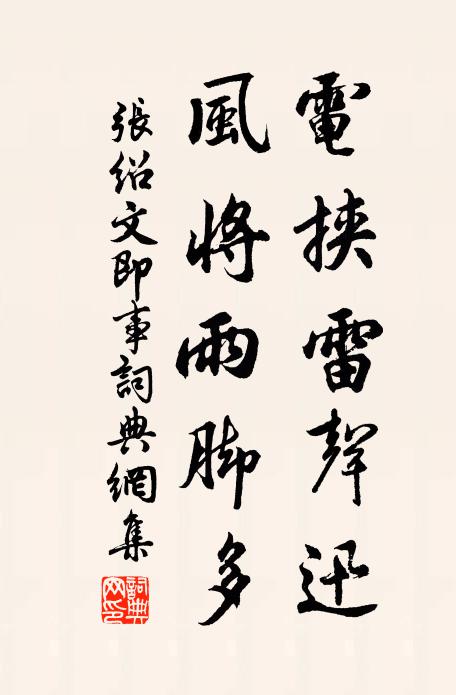 電挾雷聲迅
風將雨脚多
張紹文即事詞典網集
詞典网印